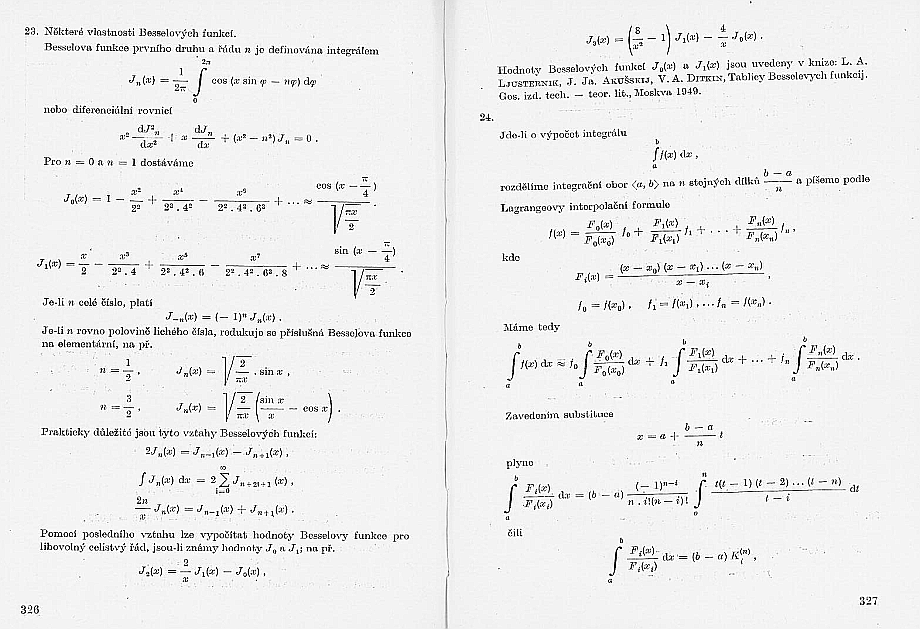 23. Některé vlastnosti Besselových funkcí.
Besselova funkce prvního druhu a řádu n je definována integrálem
J_n(x) = 1/2π ∫_0^{2π} cos (x sin φ − nφ) dφ
nebo diferenciální rovnicí
x² dJ²_n/dx² + x dJ_n/dx + (x² − n²) J_n = 0 .
Pro n = 0 a n = 1 dostáváme
J_0(x) = 1 − x²/2² + x⁴/2² . 4² − x⁶/2² . 4² . 6² + ... ≈ cos (x − π/4) / √(πx/2) .
J_1(x) = x/2 − x³/2² . 4 + x⁵/2² . 4² . 6 − x⁷/2² . 4² . 6² . 8 + ... ≈ sin (x − π/4) / √(πx/2) .
Je-li n celé číslo, platí
J_{−n}(x) = (− 1)ⁿ J_n(x) .
Je-li n rovno polovině lichého čísla, redukuje se příslušná Besselova funkce
na elementární, na př.
n = 1/2 , J_n(x) = √(2/πx) . sin x ,
n = 3/2 , J_n(x) = √(2/πx) (sin x/x − cos x) .
Prakticky důležité jsou tyto vztahy Besselových funkcí:
2J_n(x) = J_{n−1}(x) − J_{n+1}(x) ,
∫ J_n(x) dx = 2 ∑_{l=0}^{∞} J_{n+2l+1} (x) ,
2n/x J_n(x) = J_{n−1}(x) + J_{n+1}(x) .
Pomocí posledního vztahu lze vypočítat hodnoty Besselovy funkce pro
libovolný celistvý řád, jsou-li známy hodnoty J_0 a J_1; na př.
J_2(x) = 2/x J_1(x) − J_0(x) ,
326
J_3(x) = (8/x² − 1) J_1(x) − 4/x J_0(x) .
Hodnoty Besselových funkcí J_0(x) a J_1(x) jsou uvedeny v knize: L. A.
Ljusternik, J. Ja. Akušskij, V. A. Ditkin, Tablicy Besselovych funkcij.
Gos. izd. tech. — teor. lit., Moskva 1949.
24.
Jde-li o výpočet integrálu
∫_a^b f(x) dx ,
rozdělíme integrační obor ⟨a, b⟩ na n stejných dílků (b − a)/n a píšeme podle
Lagrangeovy interpolační formule
f(x) = F_0(x)/F_0(x_0) f_0 + F_1(x)/F_1(x_1) f_1 + . . . + F_n(x)/F_n(x_n) f_n ,
kde
F_i(x) = (x − x_0) (x − x_1) ... (x − x_n) / (x − x_i) ,
f_0 = f(x_0) , f_1 = f(x_1) , ... f_n = f(x_n) .
Máme tedy
∫_a^b f(x) dx ≈ f_0 ∫_a^b F_0(x)/F_0(x_0) dx + f_1 ∫_a^b F_1(x)/F_1(x_1) dx + ... + f_n ∫_a^b F_n(x)/F_n(x_n) dx .
Zavedením substituce
x = a + (b − a)/n t
plyne
∫_a^b F_i(x)/F_i(x_i) dx = (b − a) (− 1)^{n−i} / n . i!(n − i)! ∫_0^n t(t − 1) (t − 2) ... (t − n) / (t − i) dt
čili
∫_a^b F_i(x)/F_i(x_i) dx = (b − a) K_i^{(n)} ,
327